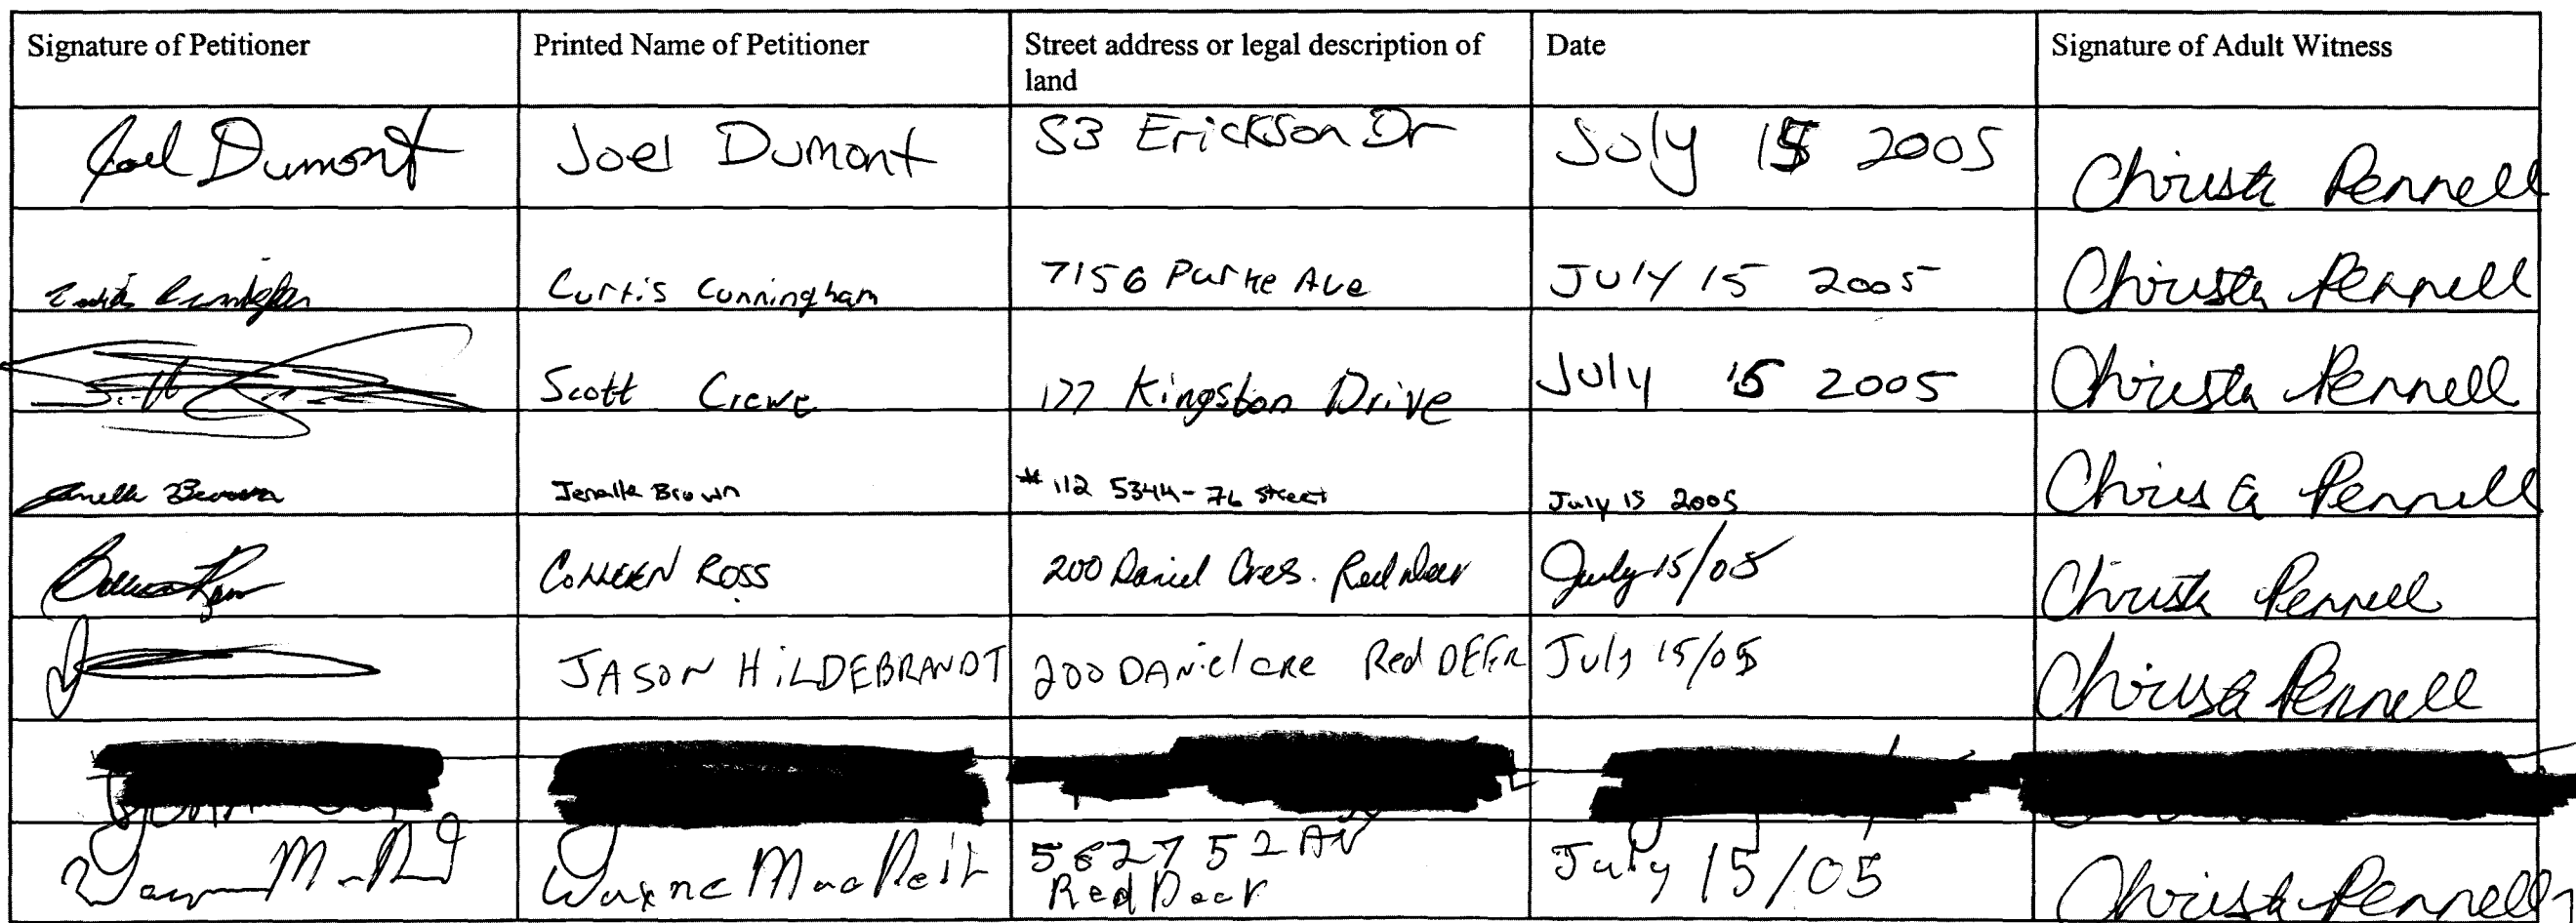 Signature of Petitioner Printed Name of Petitioner Street address or legal description of Date Signature of Adult Witness
land
Joel Dumont Joel Dumont 53 Erickson Dr July 15 2005 Christa Pennell
Curtis Cunningham 7156 Purke Ave July 15 2005 Christa Pennell
Scott Crewe 177 Kingston Drive July 15 2005 Christa Pennell
Janelle Brown Jenelle Brown #112 5344-76 Street July 15 2005 Christa Pennell
Colleen Ross COLLEEN ROSS 200 Daniel Cres. Red Deer July 15/05 Christa Pennell
JASON HiLDEBRANDT 200 DANiel cre Red DEER July 15/05 Christa Pennell
5827 52 AV
Wayne Mac July 15/05 Christa Pennell
Red Deer